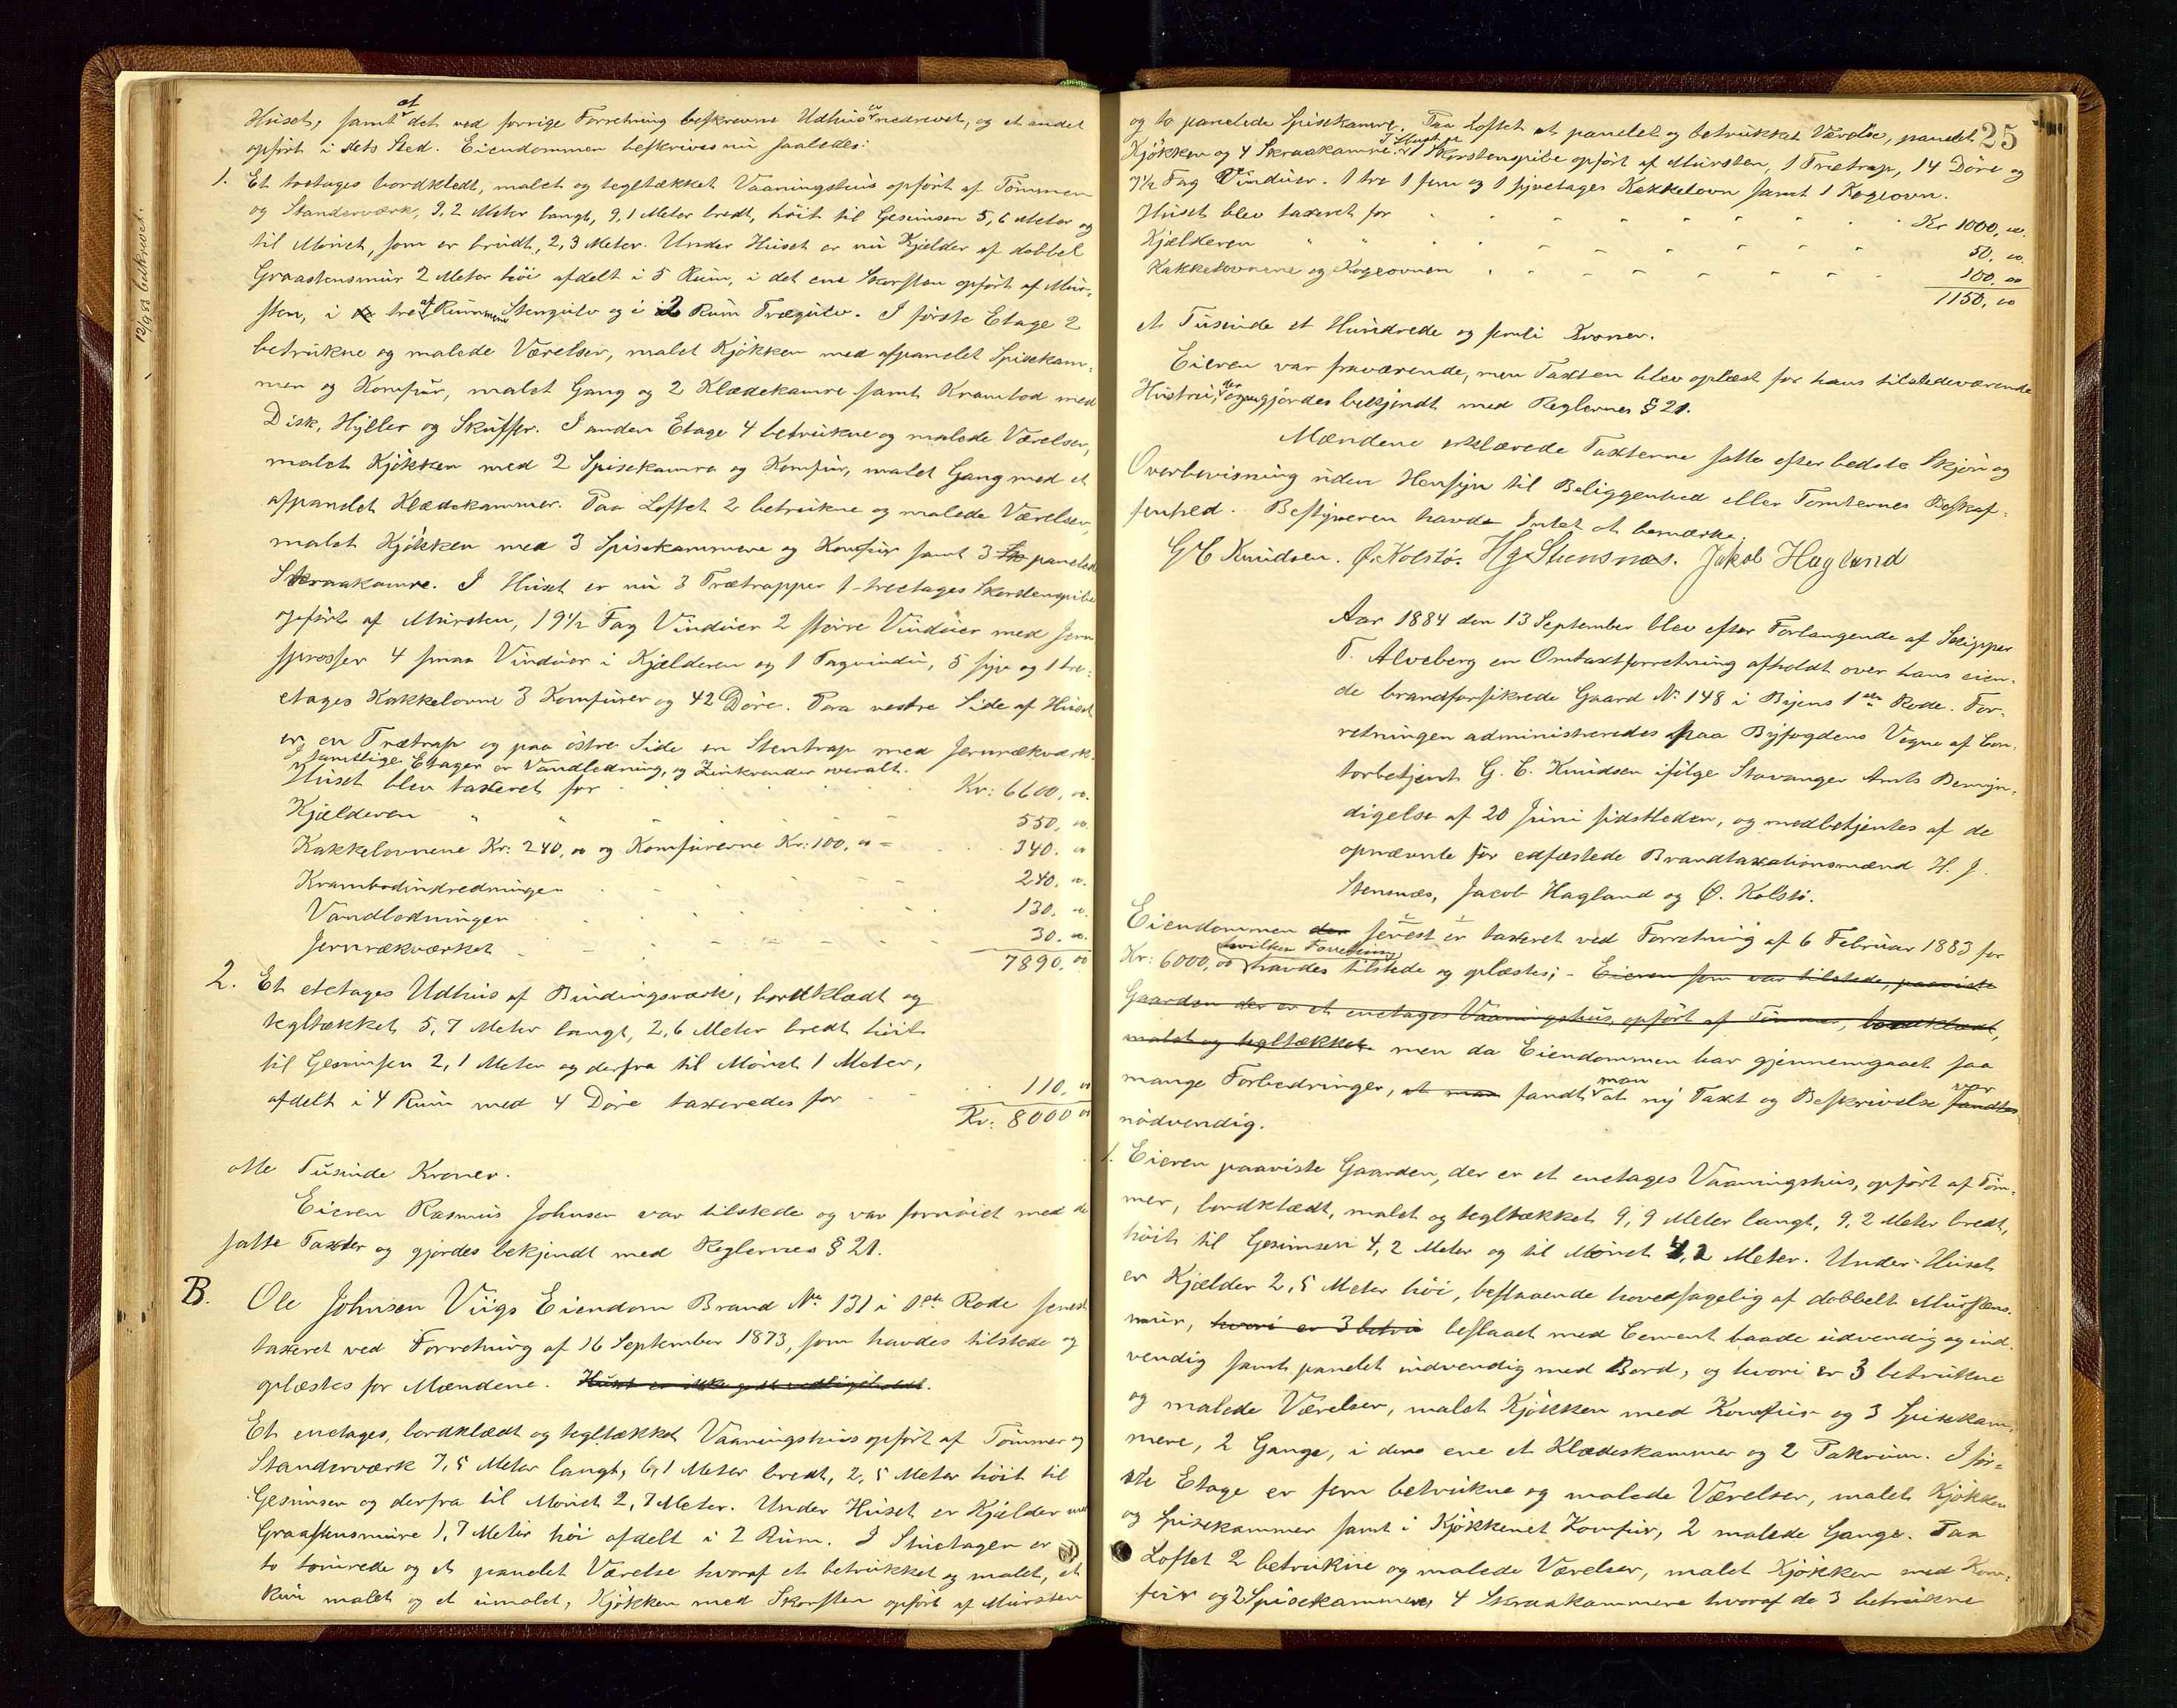 12/9 83 bekræved.
Huset, samt at det ved forrige Forretning beskrevne Udhus er nedrevet, og et andet
opført i dets Sted. Eiendommen beskrives nu saaledes:
1. Et tretages bordklædt, malet og tegltækket Vaaningshus opført af Tømmer
og Standerværk, 9,2 Meter langt, 9,1 Meter bredt, høit til Gesimsen 5,6 Meter og
til Mønet, som er brudt, 2,3 Meter. Under Huset er nu Kjelder af dobbel
Graastensmur 2 Meter høi afdelt i 5 Rum, i det ene Skorsten opført af Mur-
sten, i tre af Rummene Stengulv og i 2 Rum Trægulv. I første Etage 2
betrukne og malede Værelser, malet Kjøkken med afpanelet Spisekam-
mer og Komfur, malet Gang og 2 Klædekamre samt Krambod med
Disk, Hyller og Skuffer. I anden Etage 4 betrukne og malede Værelser,
malet Kjøkken med 2 Spisekamre og Komfur, malet Gang med et
afpanelet Klædekammer. Paa Loftet 2 betrukne og malede Værelser,
malet Kjøkken med 3 Spisekammere og Komfur samt 3 Sk panelede
Skraakamre. I Huset er nu 3 Trætrapper 1 treetages Skorstenspibe
opført af Mursten, 19 1/2 Fag Vinduer 2 større Vinduer med Jern
sprosser 4 smaa Vinduer i Kjælderen og 1 Tagvindu, 5 syv og 1 tre-
etages Kakkelovne 3 Komfurer og 42 Døre. Paa vestre Side af Huset
er en Trætrap og paa østre Side en Stentrap med Jernrækværk.
I samtlige Etager er Vandledning, og Zinkrender overalt.
Huset blev taxeret for Kr: 6600, 00.
Kjælderen " " 550, 00.
Kakkelovnene Kr: 240, 00 og Komfurerne Kr: 100, 00 = 340. 00
Krambodindredningen 240, 00.
Vandledningen 130, 00.
Jernrækværket 30. 00.
7890. 00
2. Et etetages Udhus af Bindingsværk, bordklædt og
tegltækket 5,7 Meter langt, 2,6 Meter bredt høit
til Gesimsen 2,1 Meter og derfra til Mønet 1 Meter,
afdelt i 4 Rum med 4 Døre taxeredes for 110, 00
Kr: 8000 00
otte Tusinde Kroner.
Eieren Rasmus Johnsen var tilstede og var fornøiet med de
satte Taxter og gjordes bekjendt med Reglernes § 21.
B. Ole Johnsen Viigs Eiendom Brand No 131 i 1ste Rode senest
taxeret ved Forretning af 16 September 1873, som havdes tilstede og
oplæstes for Mændene. Huset er ikke godt vedligeholdt.
Et enetages, bordklædt og tegltækket Vaaningshus opført af Tømmer og
Standerværk 7,5 Meter langt, 6,1 Meter bredt, 2,5 Meter høit til
Gesimsen og derfra til Mønet 2,7 Meter. Under Huset er Kjælder med
Graastensmure 1,7 Meter høi afdelt i 2 Rum. I Stuetagen er
to tømrede og et panelet Værelse hvoraf et betrukket og malet, et
kun malet og et umalet, Kjøkken med Skorsten opført af Mursten
25
og to panelede Spisekamre. Paa Loftet et panelet og betrukket Værelse, panelet
Kjøkken og 4 Skraakamre. I Huset er 1 Skorstenspibe opført af Mursten, 1 Trætrap, 14 Døre og
7 1/2 Fag Vinduer. 1 tre 1 fem og 1 syvetages Kakkelovn samt 1 Kogeovn.
Huset blev taxeret for Kr 1000, 00.
Kjælderen " " 50, 00.
Kakkelovnene og Kogeovnen 100, 00
1150, 00
et Tusinde et Hundrede og femti Kroner.
Eieren var fraværende, men Taxten blev oplæst for hans tilstedeværende
Hustru, der ogsaa gjordes bekjendt med Reglernes § 21.
Mændene erklærede Taxterne satte efter bedste Skjøn og
Overbevisning uden Hensyn til Beliggenhed eller Tomternes Beskaf-
fenhed. Bestyreren havde Intet at bemærke.
G C Knudsen. Ø. Kolstø. Hg Stensnæs. Jakob Hagland
Aar 1884 den 13 September blev efter Forlangende af Skipper
T. Alveberg en Omtaxtforretning afholdt over hans eien-
de brandforsikrede Gaard No 148 i Byens 1ste Rode. For-
retningen administreredes paa Byfogdens Vegne af Con-
torbetjent G. C. Knudsen ifølge Stavanger Amts Bemyn-
digelse af 20 Juni sidstleden, og medbetjentes af de
opnævnte for edfæstede Brandtaxationsmænd H. J.
Stensnæs, Jacob Hagland og Ø. Kolstø.
Eiendommen den senest er taxeret ved Forretning af 6 Februar 1883 for
Kr: 6000, 00 hvilken Forretning havdes tilstede og oplæstes; - Eieren som var tilstede, paaviste
Gaarden der er et enetages Vaaningshus, opført af Tømmer, bordklædt,
malet og tegltækket. men da Eiendommen har gjennemgaaet saa
mange Forbedringer, at man fandt man at ny Taxt og Beskrivelse fandtes var
nødvendig.
1. Eieren paaviste Gaarden, der er et enetages Vaaningshus, opført af Tøm-
mer, bordklædt, malet og tegltækket 9,9 Meter langt, 9,2 Meter bredt,
høit til Gesimsen 4,2 Meter og til Mønet 4,2 Meter. Under Huset
er Kjælder 2,5 Meter høi, bestaaende hovedsagelig af dobbelt Murstens-
mur, hvori er 3 betru beslaaet med Cement baade udvendig og ind-
vendig samt panelet indvendig med Bord, og hvori er 3 betrukne
og malede Værelser, malet Kjøkken med Komfur og 3 Spisekam-
mere, 2 Gange, i den ene et Klædeskammer og 2 Pakrum. I før-
ste Etage er fem betrukne og malede Værelser, malet Kjøkken
og Spisekammer samt i Kjøkkenet Komfur, 2 malede Gange. Paa
Loftet 2 betrukne og malede Værelser, malet Kjøkken med Kom-
fur og 2 Spisekammere, 4 Skraakammere hvoraf de 3 betrukne